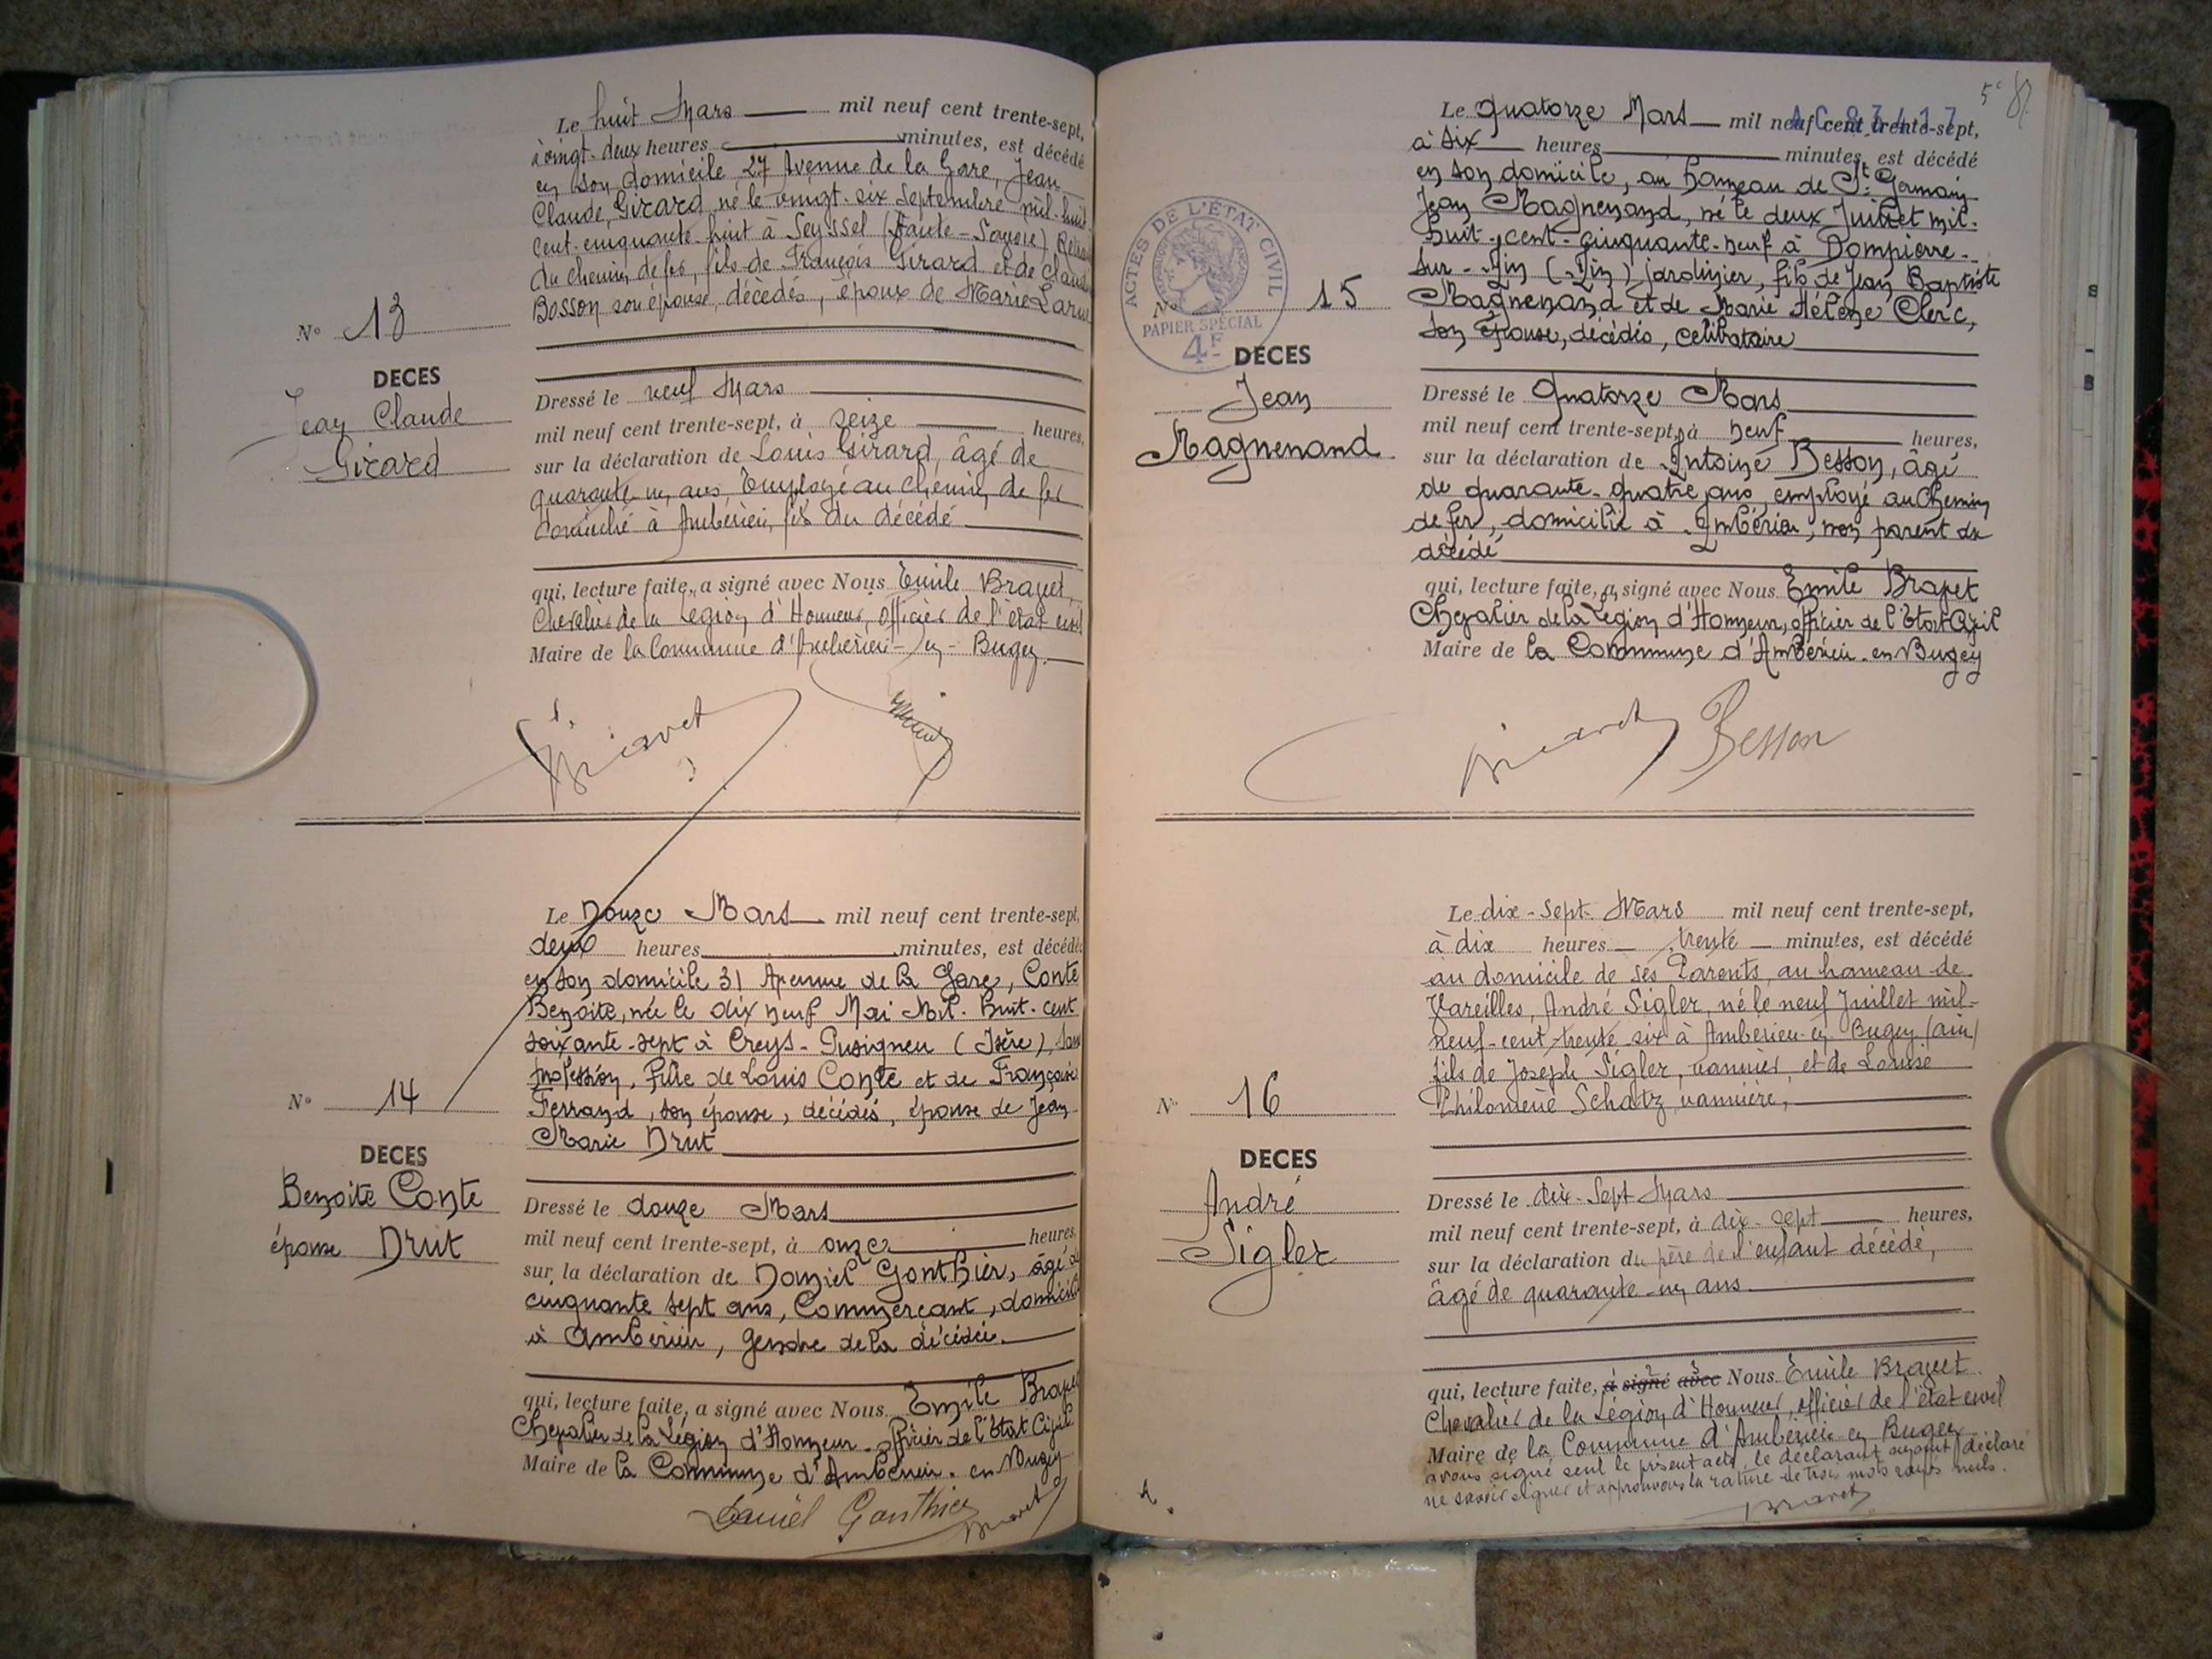 Le huit Mars mil neuf cent trente-sept,
à vingt-deux heures minutes, est décédé
en son domicile 27 Avenue de la Gare, Jean
Claude, Girard, né le vingt-six Septembre mil-huit
cent-cinquante-huit à Seyssel (Haute-Savoie)
du chemin de fer, fils de François Girard et de Claud
Bosson son épouse, décédés, époux de Marie
No 13
DECES
Jean Claude
Girard
Dressé le neuf Mars
mil neuf cent trente-sept, à seize heures,
sur la déclaration de Louis Girard, âgé de
quarante-un ans, Employé au chemin de fer
domicilié à Ambérieu, fils du décédé
qui, lecture faite, a signé avec Nous Emile Bravet,
Chevalier de la Légion d'Honneur, Officier de l'état civil
Maire de la Commune d'Ambérieu-en-Bugey.
Bravet
Le Douze Mars mil neuf cent trente-sept,
deux heures minutes, est décédé
en son domicile 31 Avenue de la Gare, Conte
Benoite, née le dix neuf Mai Mil-huit-cent
soixante-sept à Creys-Pusigneu (Isère), sans
profession, fille de Louis Conte et de Françoise
Ferrand, son épouse, décédés, épouse de Jean
Marie Drut
No 14
DECES
Benoite Conte
épouse Drut
Dressé le douze Mars
mil neuf cent trente-sept, à onze heures,
sur la déclaration de Daniel Gonthier, âgé de
cinquante sept ans, Commerçant, domicilié
à Ambérieu, gendre de la décédée.
qui, lecture faite, a signé avec Nous Emile Bravet
Chevalier de la Légion d'Honneur officier de l'Etat Civil
Maire de la Commune d'Ambérieu-en-Bugey
Daniel Gonthier Bravet
AC 83417
5e
Le Quatorze Mars mil neuf cent trente-sept,
à six heures minutes, est décédé
en son domicile, au hameau de St Germain
Jean Magnenand, né le deux Juillet mil-
huit-cent-cinquante-neuf à Dompierre-
sur-Ain (Ain) jardinier, fils de Jean Baptiste
Magnenand et de Marie Hélène Clerc,
son épouse, décédés, célibataire
ACTES DE L'ÉTAT CIVIL
PAPIER SPÉCIAL
4F
No 15
DECES
Jean
Magnenand
Dressé le Quatorze Mars
mil neuf cent trente-sept, à neuf heures,
sur la déclaration de Antoine Besson, âgé
de quarante-quatre ans, employé au Chemin
de fer, domicilié à Ambérieu, non parent du
décédé
qui, lecture faite, a signé avec Nous Emile Bravet
Chevalier de la Légion d'Honneur, officier de l'Etat Civil
Maire de la Commune d'Ambérieu-en-Bugey
Bravet Besson
Le dix-sept Mars mil neuf cent trente-sept,
à dix heures trente minutes, est décédé
au domicile de ses Parents, au hameau de
Vareilles, André Sigler, né le neuf Juillet mil-
neuf-cent-trente-six à Ambérieu-en Bugey (ain)
fils de Joseph Sigler, vannier, et de Louise
Philomène Schatz, vannière,
No 16
DECES
André
Sigler
Dressé le dix-sept Mars
mil neuf cent trente-sept, à dix-sept heures,
sur la déclaration du père de l'enfant décédé,
âgé de quarante-un ans
qui, lecture faite, a signé avec Nous Emile Bravet
Chevalier de la Légion d'Honneur, officier de l'état civil
Maire de la Commune d'Ambérieu en Bugey
avons signé seul le présent acte, le déclarant ayant déclaré
ne savoir signer et approuvons la rature de trois mots rayés nuls.
Bravet